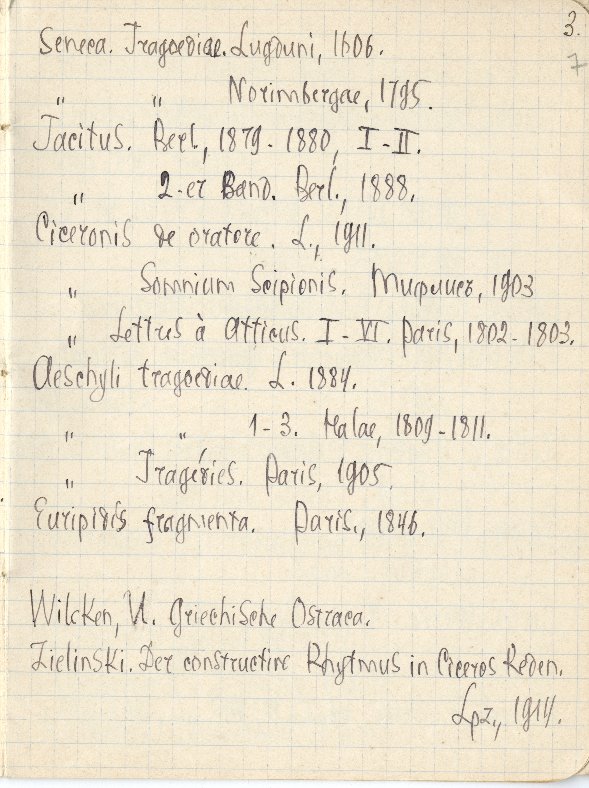 3.
7
Seneca. Tragoediae. Lugduni, 1606.
„ „ Norimbergae, 1795.
Tacitus. Berl., 1879-1880, I-II.
„ 2-er Band. Berl., 1888.
Ciceronis de oratore. L., 1911.
„ Somnium Scipionis. Тифлисъ, 1903
„ Lettres à Atticus. I-VI. Paris, 1802-1803.
Aeschyli tragoediae. L. 1884.
„ „ 1-3. Halae, 1809-1811.
„ Tragédies. Paris, 1905.
Euripidis fragmenta. Paris., 1846.
Wilcken, U. Griechische Ostraca.
Zielinski. Der constructive Rhytmus in Ciceros Reden.
Lpz., 1914.